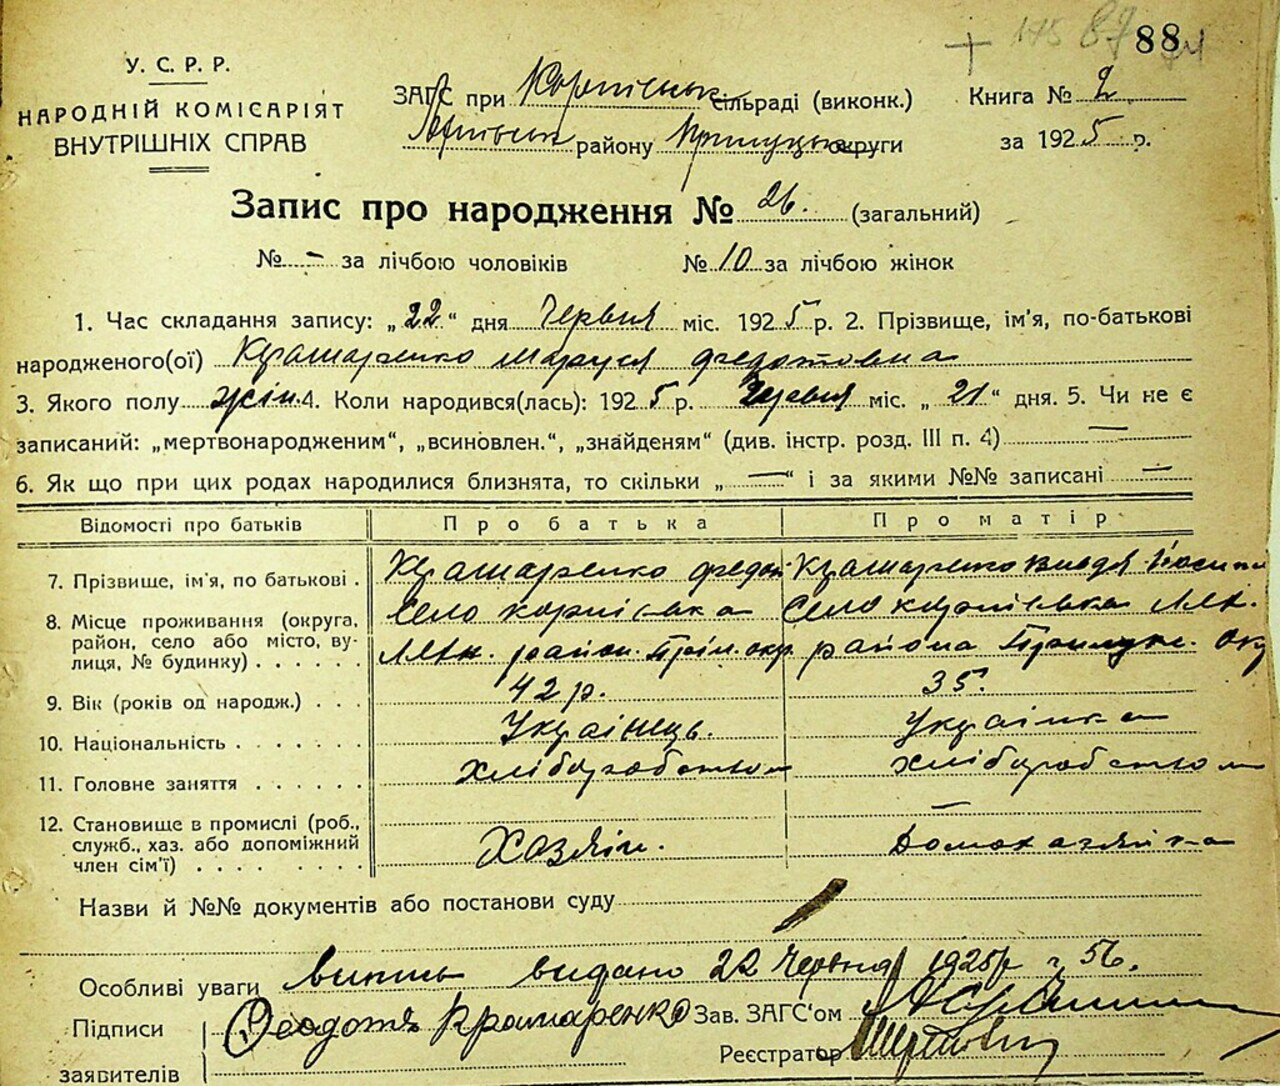 175 87 88
У. С. Р. Р.
НАРОДНІЙ КОМІСАРІЯТ
ВНУТРІШНІХ СПРАВ
ЗАГС при сільраді (виконк.)
Книга № 2
району Прилуцька округи
за 1925 р.
Запис про народження № 26. (загальний)
№ - за лічбою чоловіків № 10 за лічбою жінок
1. Час складання запису: „22“ дня Червня міс. 1925 р. 2. Прізвище, ім'я, по-батькові
народженого(ої) Крамаренко Маруся Федотовна
3. Якого полу жін. 4. Коли народився(лась): 1925 р. Червня міс. „21“ дня. 5. Чи не є
записаний: „мертвонародженим“, „всиновлен.“, „знайденям“ (див. інстр. розд. III п. 4) —
6. Як що при цих родах народилися близнята, то скільки „—“ і за якими №№ записані —
Відомості про батьків Про батька Про матір
7. Прізвище, ім'я, по батькові . Крамаренко Федот Крамаренко
8. Місце проживання (округа, село Село
район, село або місто, ву-
лиця, № будинку) . . . . . . район. Прил. окр. района Прилуцк. окр
9. Вік (років од народж.) . . . 42 р. 35.
10. Національність . . . . . . . Українець. Українка
11. Головне заняття . . . . . . хліборобство хліборобство
12. Становище в промислі (роб., —
служб., хаз. або допоміжний Хазяїн. Домохазяйка
член сім'ї) . . . . . . . . .
Назви й №№ документів або постанови суду
Особливі уваги випись видано 22 Червня 1925 р ч. 56.
Підписи Феодотъ Крамаренко Зав. ЗАГС'ом
заявителів Реєстратор